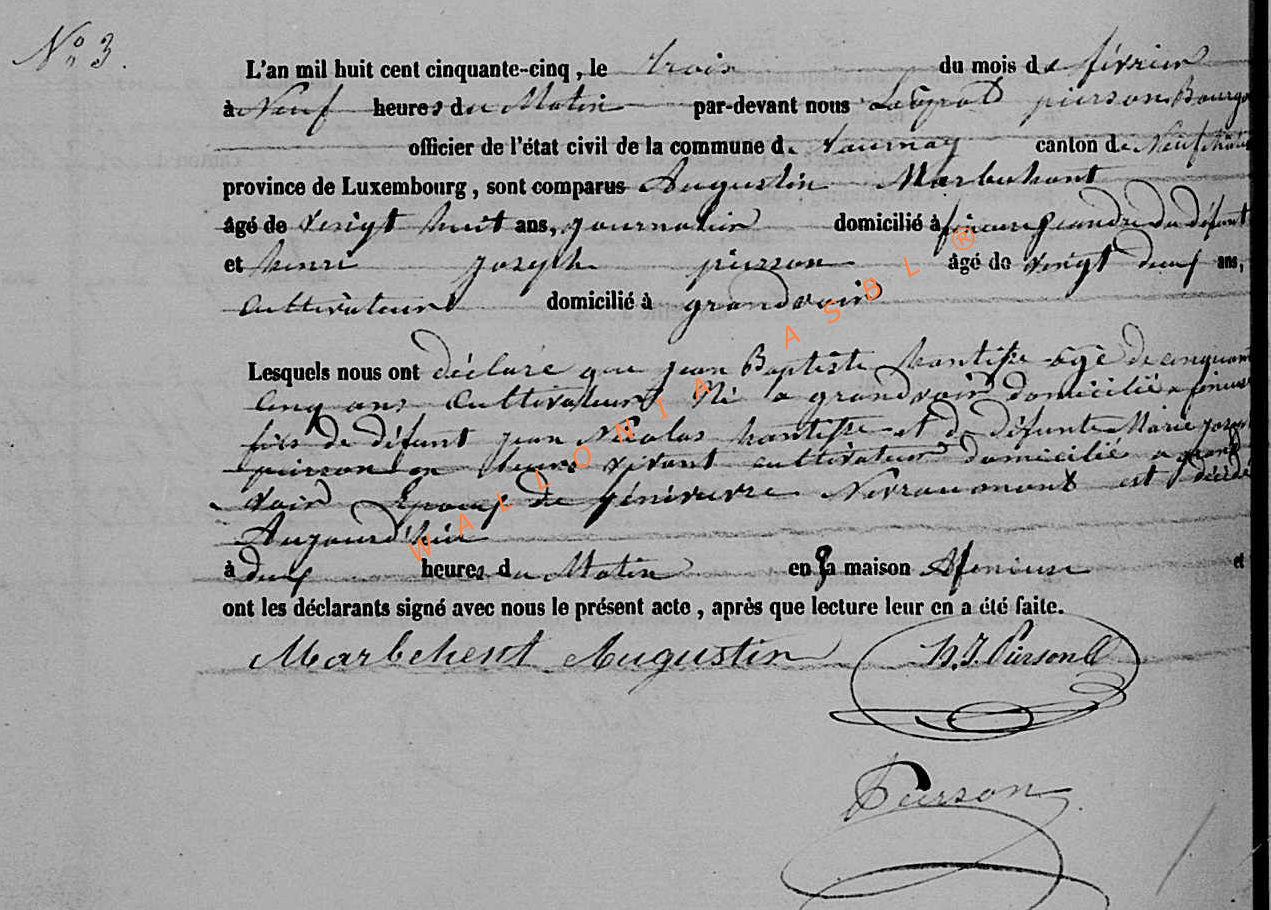 N° 3.
L'an mil huit cent cinquante-cinq, le trois du mois de février
à Neuf heures du Matin par-devant nous pierson Bourg
officier de l'état civil de la commune de tournay canton de Neufchât
province de Luxembourg, sont comparus Augustin Marbehant
âgé de vingt huit ans, journalier domicilié à gendre du défunt
et henri joseph pierson âgé de vingt deux ans,
cultivateur domicilié à grandvoir
Lesquels nous ont déclaré que jean Baptiste hantisse âgé de cinquante
cinq ans cultivateur Né a grandvoir domicilié a
fils de défunt jean Nicolas hantisse et de défunte Marie joseph
pierson en leurs vivant cultivateur domicilié a grand
voir Epoux de généviève Nivraumont est décédé
Aujourd'hui
à deux heures du Matin en sa maison A fineuse et
ont les déclarants signé avec nous le présent acte, après que lecture leur en a été faite.
Marbehent Augustin H. J. Pierson
Pierson
WALLONIA ASBL ®